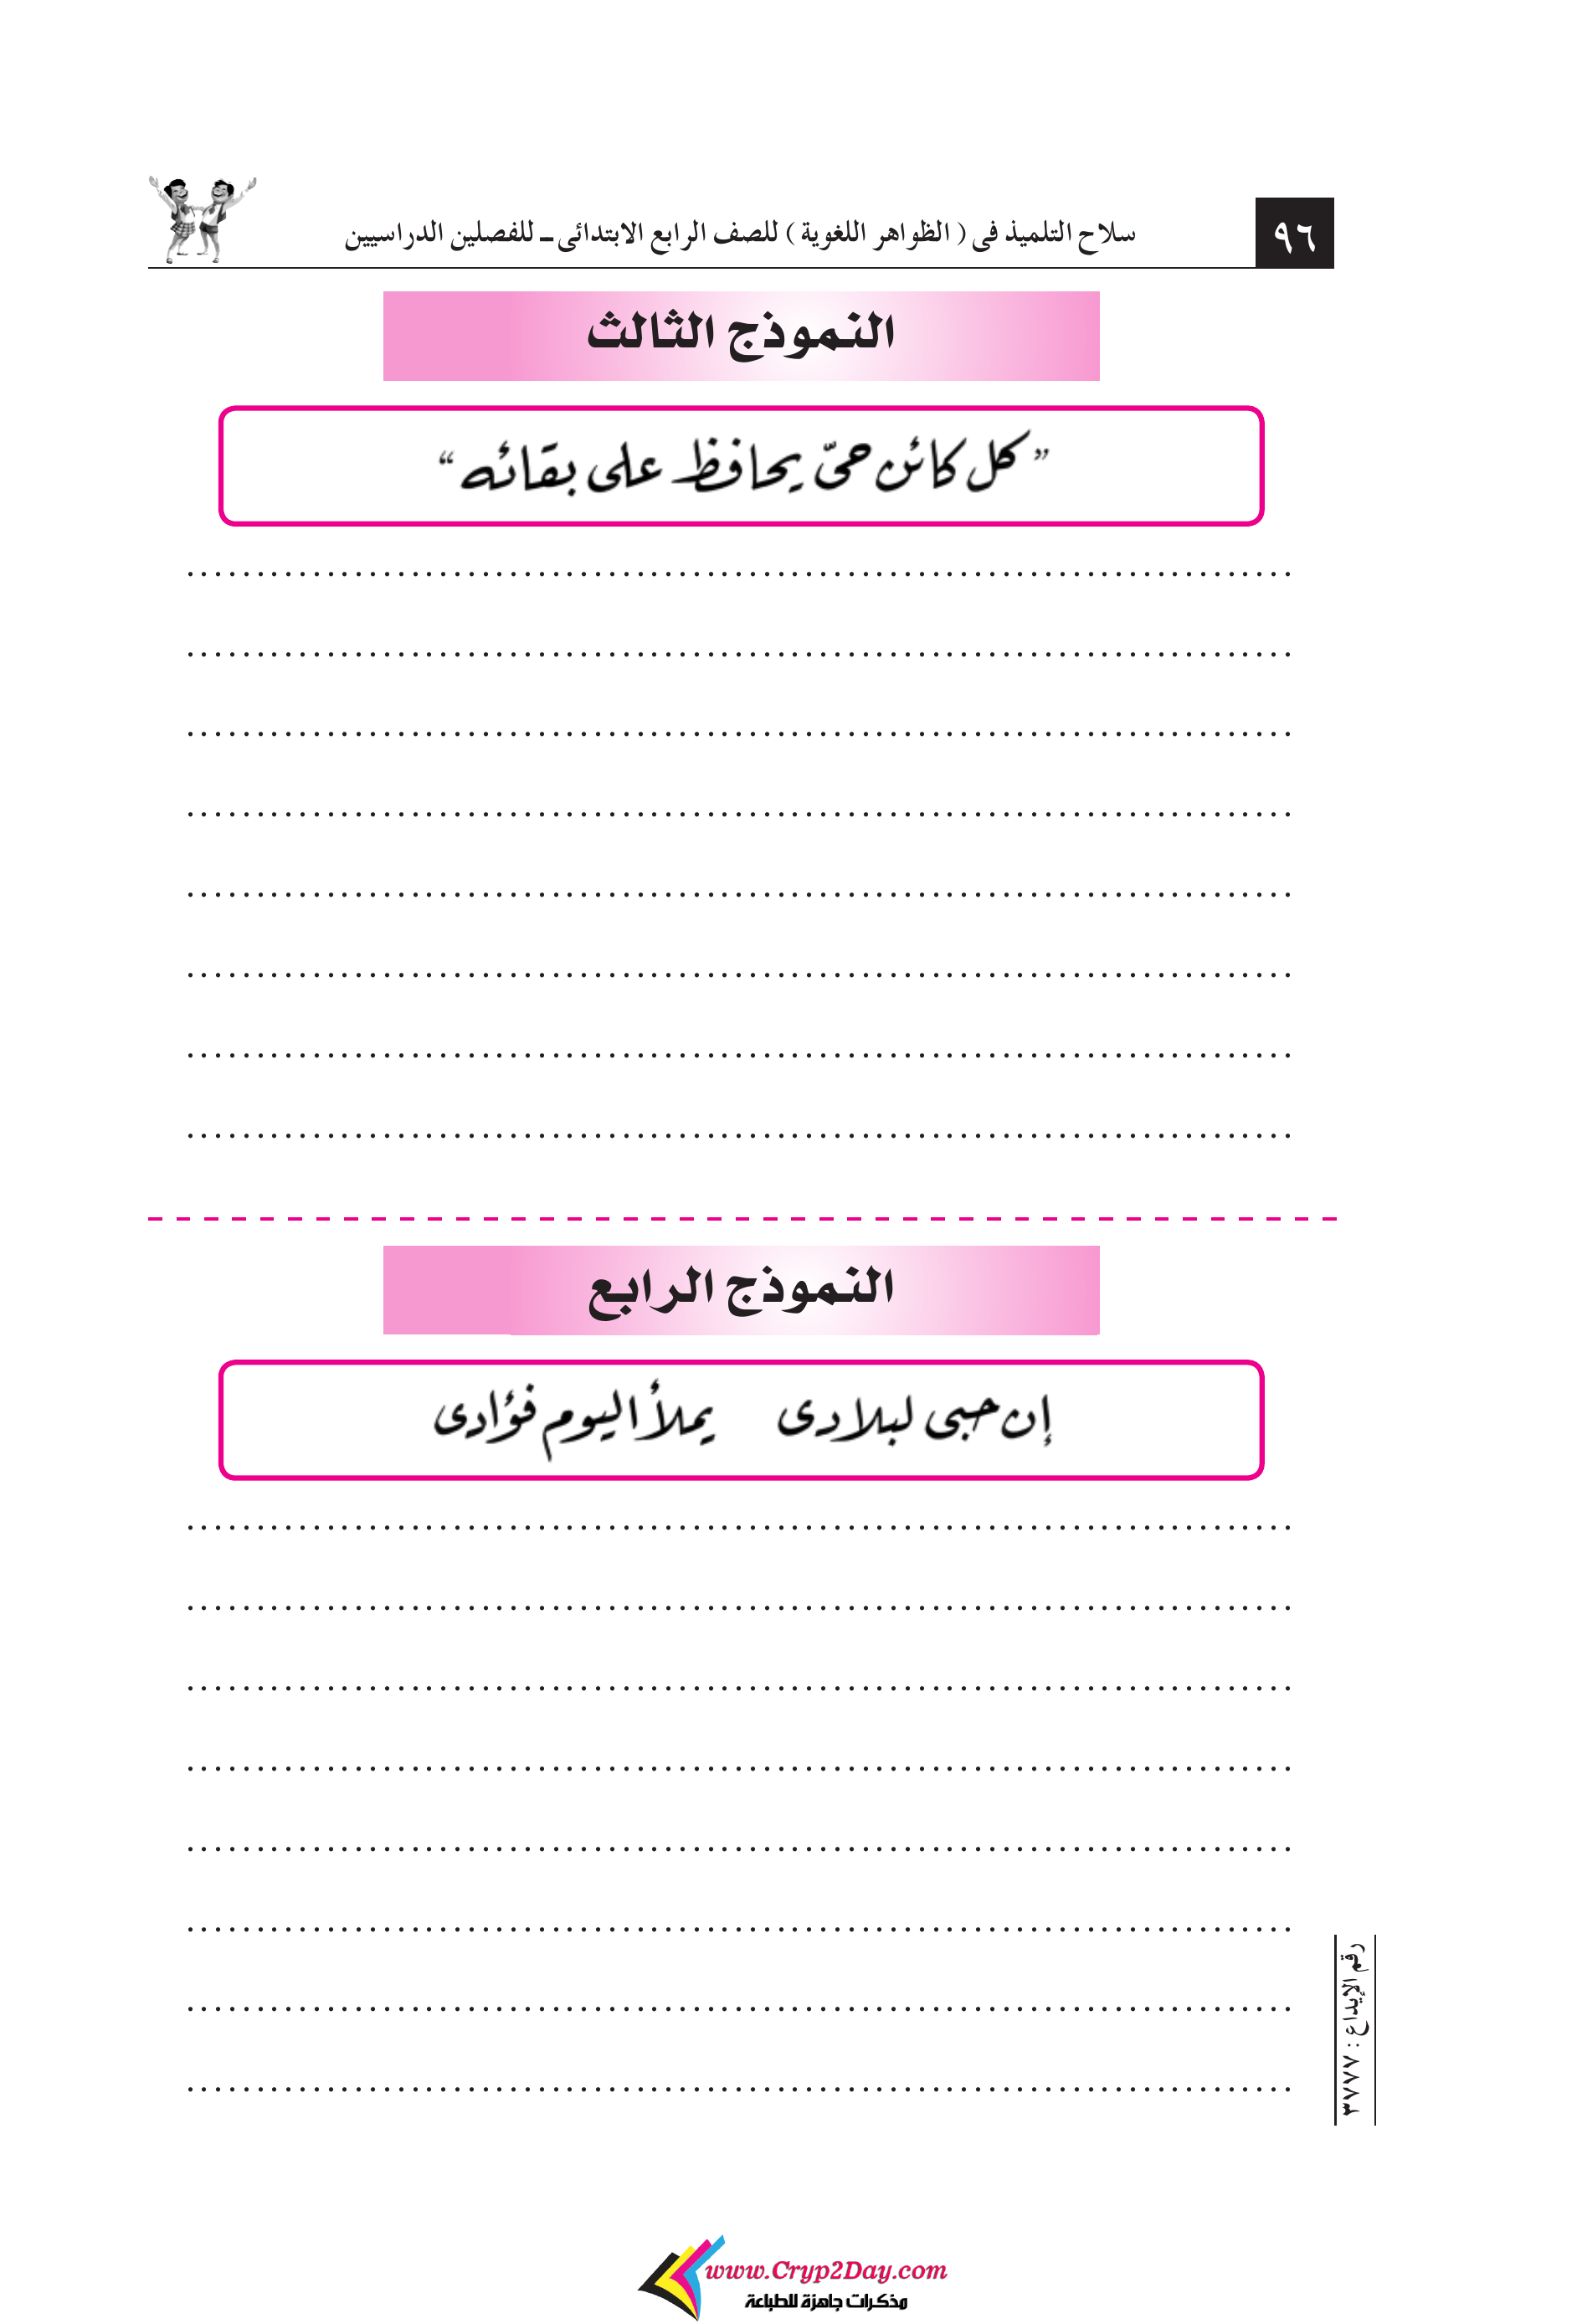 سلاح التلميذ فى ( الظواهر اللغوية ) للصف الرابع الابتدائى ـ للفصلين الدراسيين
٩٦
النموذج الثالث
” كل كائن حىّ يحافظ على بقائه “
النموذج الرابع
إن حبى لبلادى يملأ اليوم فؤادى
رقم الإيداع : ٣٧٧٧
www.Cryp2Day.com
مذكرات جاهزة للطباعة